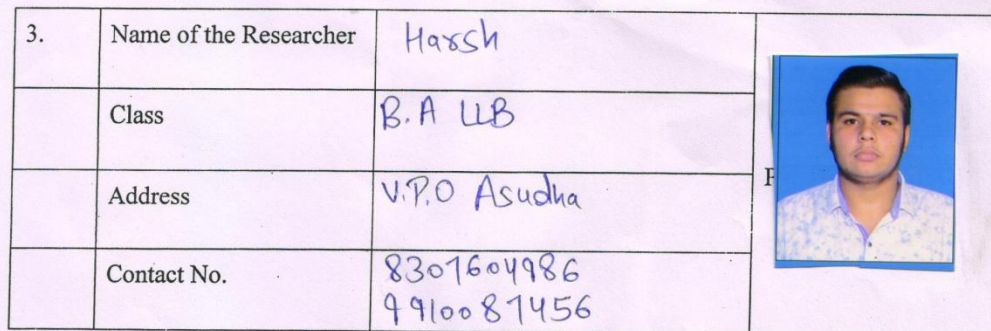 3. Name of the Researcher Harsh
Class B.A LLB
Address V.P.O Asudha
Contact No. 8307604986
9910087456